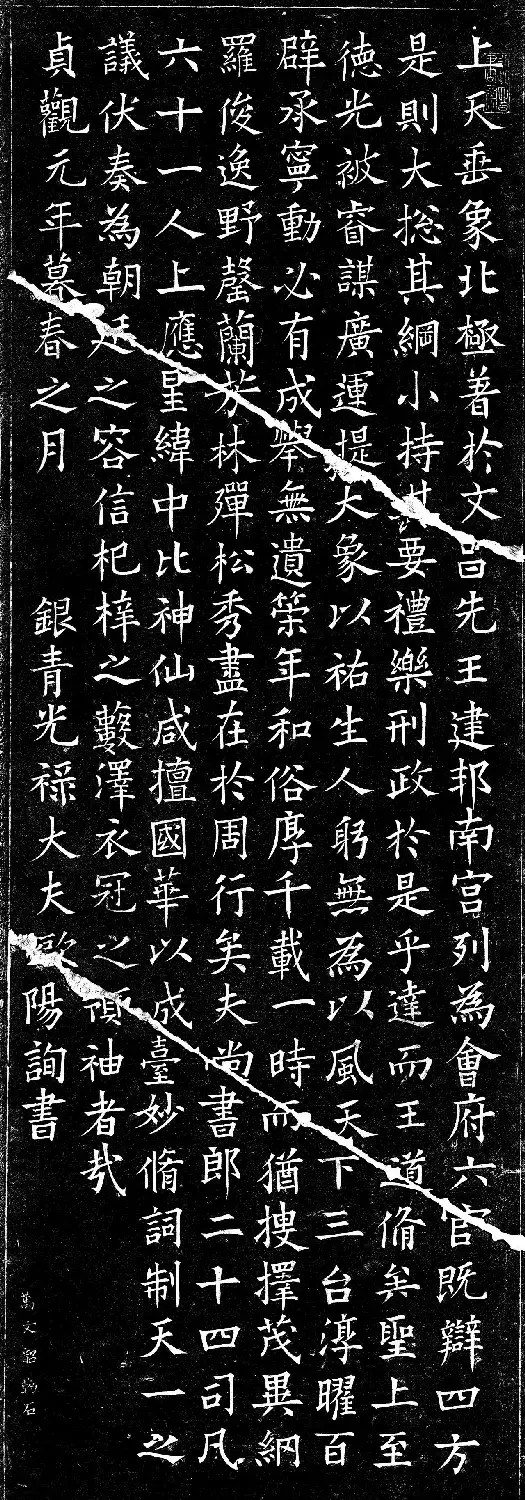 上天垂象北極著於文昌先王建邦南宮列為會府六官既辯四方
是則大揔其綱小持其要禮樂刑政於是乎達而王道脩矣聖上至
德光被睿謀廣運提大象以祐生人躬無為以風天下三台淳曜百
辟承寧動必有成舉無遺筞年和俗厚千載一時而猶搜擇茂異網
羅俊逸野罄蘭芳林殫松秀盡在於周行矣夫尚書郎二十四司凡
六十一人上應星緯中比神仙咸擅國華以成臺妙脩詞制天一之
議伏奏為朝廷之容信杞梓之藪澤衣冠之領袖者哉
貞觀元年暮春之月 銀青光祿大夫歐陽詢書
萬文韶石